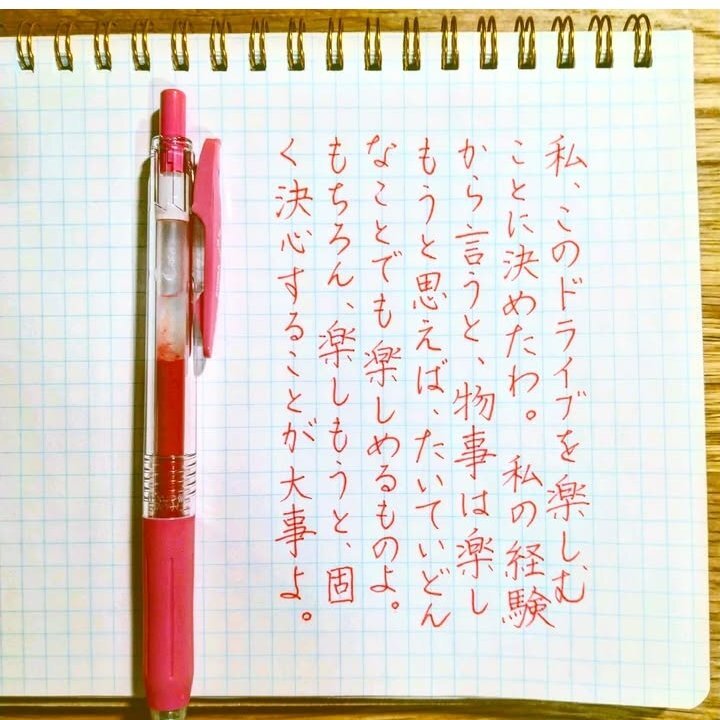 私、このドライブを楽しむ
ことに決めたわ。私の経験
から言うと、物事は楽し
もうと思えば、たいていどん
なことでも楽しめるものよ。
もちろん、楽しもうと、固
く決心することが大事よ。